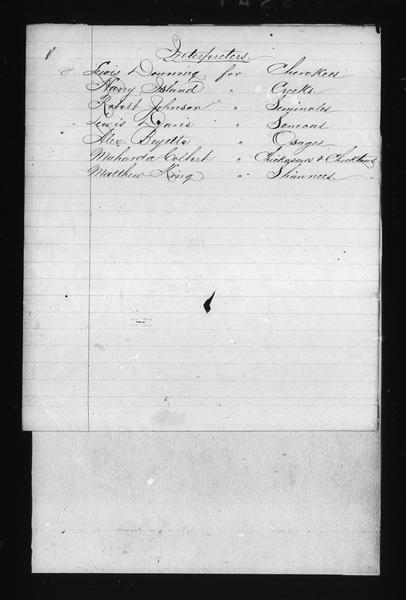 Interpreters
Lewis Downing for Cherokees
Harry Island " Creeks
Robert Johnson " Seminoles
Lewis Davis " Senecas
Alex. Beyette " Osages
Maharda Colbert " Chickasaws & Choctaws
Matthew King " Shawnees